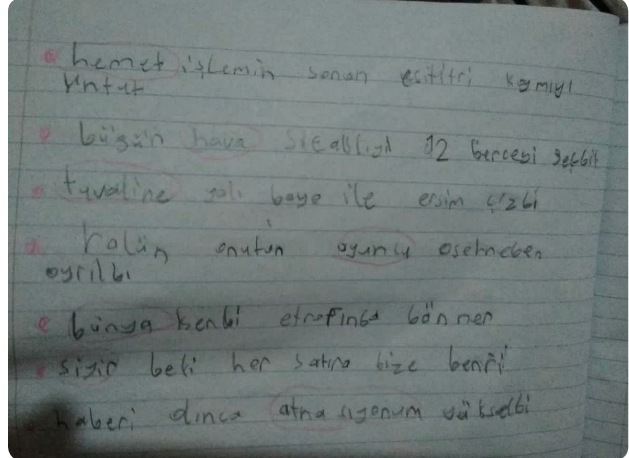 hemet işlemin sonan esititri koymıyı
Yntut
bügün hava sıcablığı 12 bercesi geçbit
tuvaline yolı boya ile ersim çizbi
rolün onuton oyuncu osehneben
oyrilbı
bünya kenbi etrofinba bönner
siyir beli her satıra bize benri
haberi dınca atna siyonum yükselbi